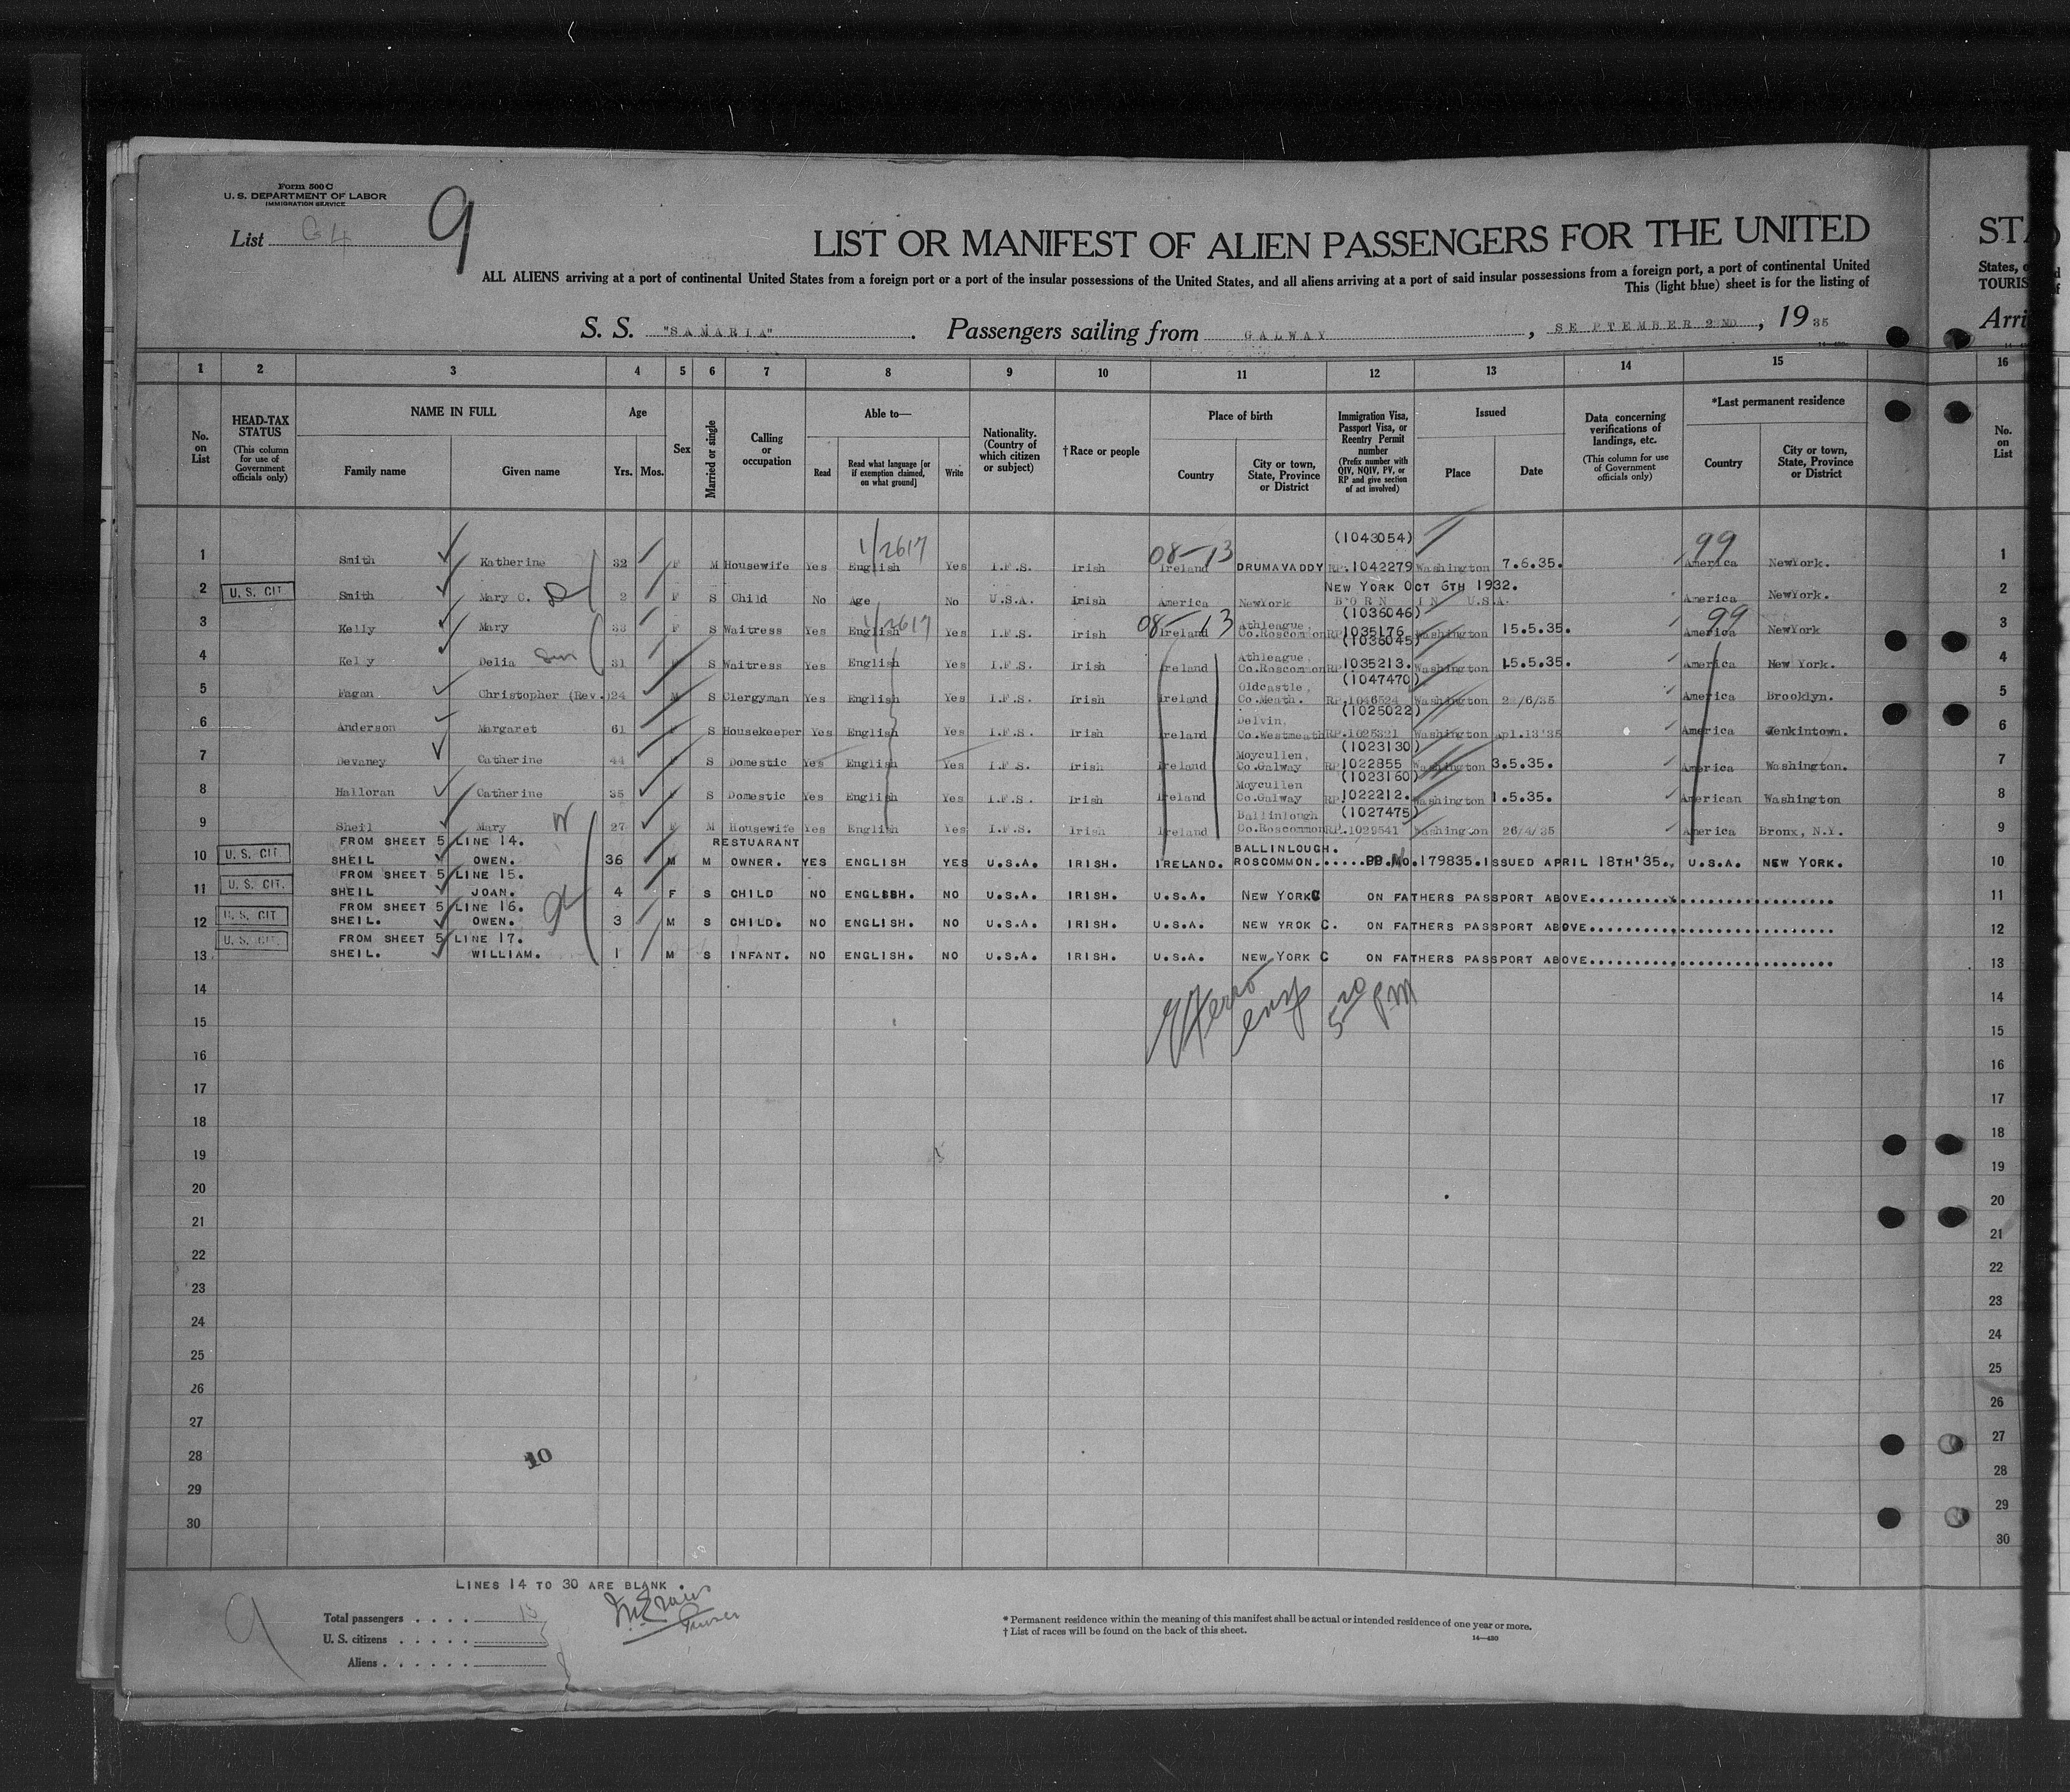 Form 500 C
U. S. DEPARTMENT OF LABOR
IMMIGRATION SERVICE
List G4
9
LIST OR MANIFEST OF ALIEN PASSENGERS FOR THE UNITED
STA
ALL ALIENS arriving at a port of continental United States from a foreign port or a port of the insular possessions of the United States, and all aliens arriving at a port of said insular possessions from a foreign port, a port of continental United
States, o
This (light blue) sheet is for the listing of
TOURIS
S. S. "SAMARIA". Passengers sailing from GALWAY, SEPTEMBER 2ND, 1935
Arri
1 2 3 4 5 6 7 8 9 10 11 12 13 14 15 16
No. on List
HEAD-TAX STATUS (This column for use of Government officials only)
NAME IN FULL
Family name Given name
Age
Yrs. Mos.
Sex
Married or single
Calling or occupation
Able to—
Read Read what language [or if exemption claimed, on what ground] Write
Nationality. (Country of which citizen or subject)
†Race or people
Place of birth
Country City or town, State, Province or District
Immigration Visa, Passport Visa, or Reentry Permit number (Prefix number with QIV, NQIV, PV, or RP and give section of act involved)
Issued
Place Date
Data concerning verifications of landings, etc. (This column for use of Government officials only)
*Last permanent residence
Country City or town, State, Province or District
No. on List
1/2617 08-13 (1043054) 99
1 Smith Katherine 32 F M Housewife Yes English Yes I.F.S. Irish Ireland DRUMAVADDY RP.1042279 Washington 7.6.35. America NewYork. 1
NEW YORK OCT 6TH 1932.
2 U. S. CIT. Smith Mary C. 2 F S Child No Age No U.S.A. Irish America NewYork BORN IN U.S.A. America NewYork. 2
1/2617 08-13 Athleague, (1036046) 99
3 Kelly Mary 33 F S Waitress Yes English Yes I.F.S. Irish Ireland Co.Roscommon RP1035176 Washington 15.5.35. America NewYork 3
Athleague, (1036045)
4 Kelly Delia 31 F S Waitress Yes English Yes I.F.S. Irish Ireland Co.Roscommon RP1035213. Washington 15.5.35. America New York. 4
Oldcastle, (1047470)
5 Fagan Christopher (Rev.) 24 M S Clergyman Yes English Yes I.F.S. Irish Ireland Co.Meath. RP.1046524 Washington /6/35 America Brooklyn. 5
Delvin, (1025022)
6 Anderson Margaret 61 F S Housekeeper Yes English Yes I.F.S. Irish Ireland Co.Westmeath RP.1025321 Washington Apl.13'35 America Jenkintown. 6
Moycullen, (1023130)
7 Devaney Catherine 44 F S Domestic Yes English Yes I.F.S. Irish Ireland Co.Galway RP1022855 Washington 3.5.35. America Washington. 7
Moycullen (1023160)
8 Halloran Catherine 35 F S Domestic Yes English Yes I.F.S. Irish Ireland Co.Galway RP1022212. Washington 1.5.35. American Washington 8
Ballinlough (1027475)
9 Sheil Mary W 27 F M Housewife Yes English Yes I.F.S. Irish Ireland Co.Roscommon RP.1029541 Washington 26/4/35 America Bronx, N.Y. 9
FROM SHEET 5 LINE 14. RESTUARANT BALLINLOUGH.
10 U. S. CIT. SHEIL OWEN. 36 M M OWNER. YES ENGLISH YES U.S.A. IRISH. IRELAND. ROSCOMMON......PP.No.179835.ISSUED APRIL 18TH'35.. U.S.A. NEW YORK. 10
FROM SHEET 5 LINE 15.
11 U. S. CIT. SHEIL JOAN. 4 F S CHILD NO ENGLISH. NO U.S.A. IRISH. U.S.A. NEW YORK C ON FATHERS PASSPORT ABOVE.............................. 11
FROM SHEET 5 LINE 16.
12 U. S. CIT. SHEIL. OWEN. 3 M S CHILD. NO ENGLISH. NO U.S.A. IRISH. U.S.A. NEW YROK C. ON FATHERS PASSPORT ABOVE.............................. 12
FROM SHEET 5 LINE 17.
13 U. S. CIT. SHEIL. WILLIAM. 1 M S INFANT. NO ENGLISH. NO U.S.A. IRISH. U.S.A. NEW YORK C ON FATHERS PASSPORT ABOVE.............................. 13
14 14
5 20 PM
15 15
16 16
17 17
18 18
19 19
20 20
21 21
22 22
23 23
24 24
25 25
26 26
27 27
28 10 28
29 29
30 30
LINES 14 TO 30 ARE BLANK.
9
Total passengers . . . . 13
U. S. citizens . . . . .
Aliens . . . . . .
Purser
* Permanent residence within the meaning of this manifest shall be actual or intended residence of one year or more.
† List of races will be found on the back of this sheet.
14—430